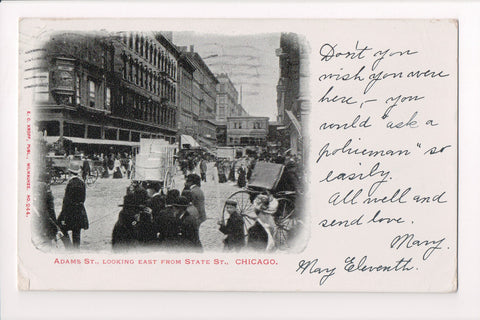 Don't you
wish you were
here, - you
could "ask a
policeman" so
easily.
All well and
send love.
Mary.
May Eleventh.
ADAMS ST., LOOKING EAST FROM STATE ST., CHICAGO.
E. C. KROPP, PUBL., MILWAUKEE.